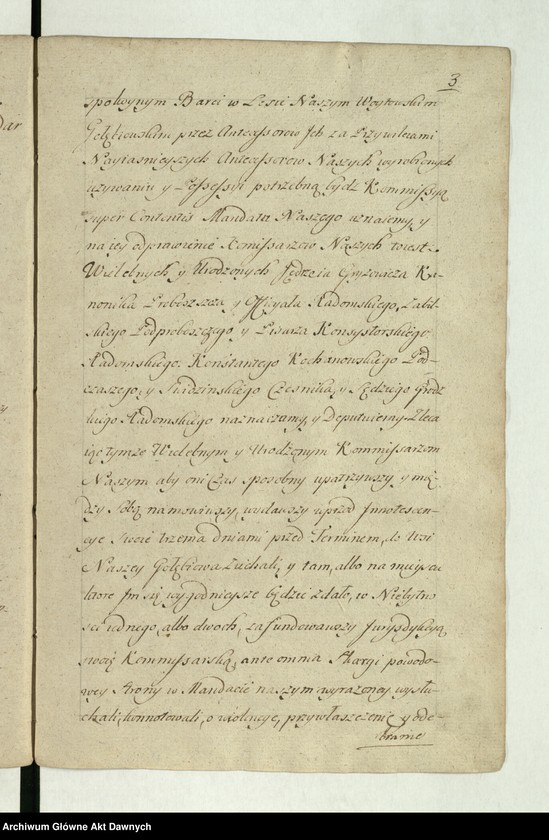 3
spokoynym Barci w Lesie Naszym Woytowskim
Gołębiowskim przez Antecessorow Ich za Przywileiami
Nayiasnieyszych Antecessorow Naszych wyrobionych
uzywaniu y Possessyi potrzebną bydź Kommissyą
super Contentis Mandatu Naszego uznaiemy, y
na iey odprawienie Komissarzow Naszych to iest
Wielebnych y Urodzonych Jędrzeia Gryzewicza Ka-
nonika Proboszcza y Officyała Radomskiego,
skiego Podproboszczego y Pisarza Konsystorskiego
Radomskiego. Konstantego Kochanowskiego Pod-
czaszego, y Swidzinskiego Czesnika, y Sędziego Grodz
kiego Radomskiego naznaczamy, y Deputuiemy. Zleca
iąc tymze Wielebnym y Urodzonym Kommissarzom
Naszym aby oni czas sposobny upatrzywszy y mię
dzy sobą namowiwszy, wydawszy wprzod Innotescen-
cye swoie trzema dniami przed Terminem, do Wsi
Naszey Gołębiowa ziechali, y tam, albo na mieyscu
ktore Im się wygodnieysze będzie zdało, w Niebytno
sci iednego, albo dwoch, zafundowawszy Jurysdykcyą
swoię Kommissarską, ante omnia Skargi powodo-
wey Strony w Mandacie naszym wyrazoney wysłu-
chali, konnotowali, o wiolencye, przywłaszczenie y ode-
branie
Archiwum Główne Akt Dawnych